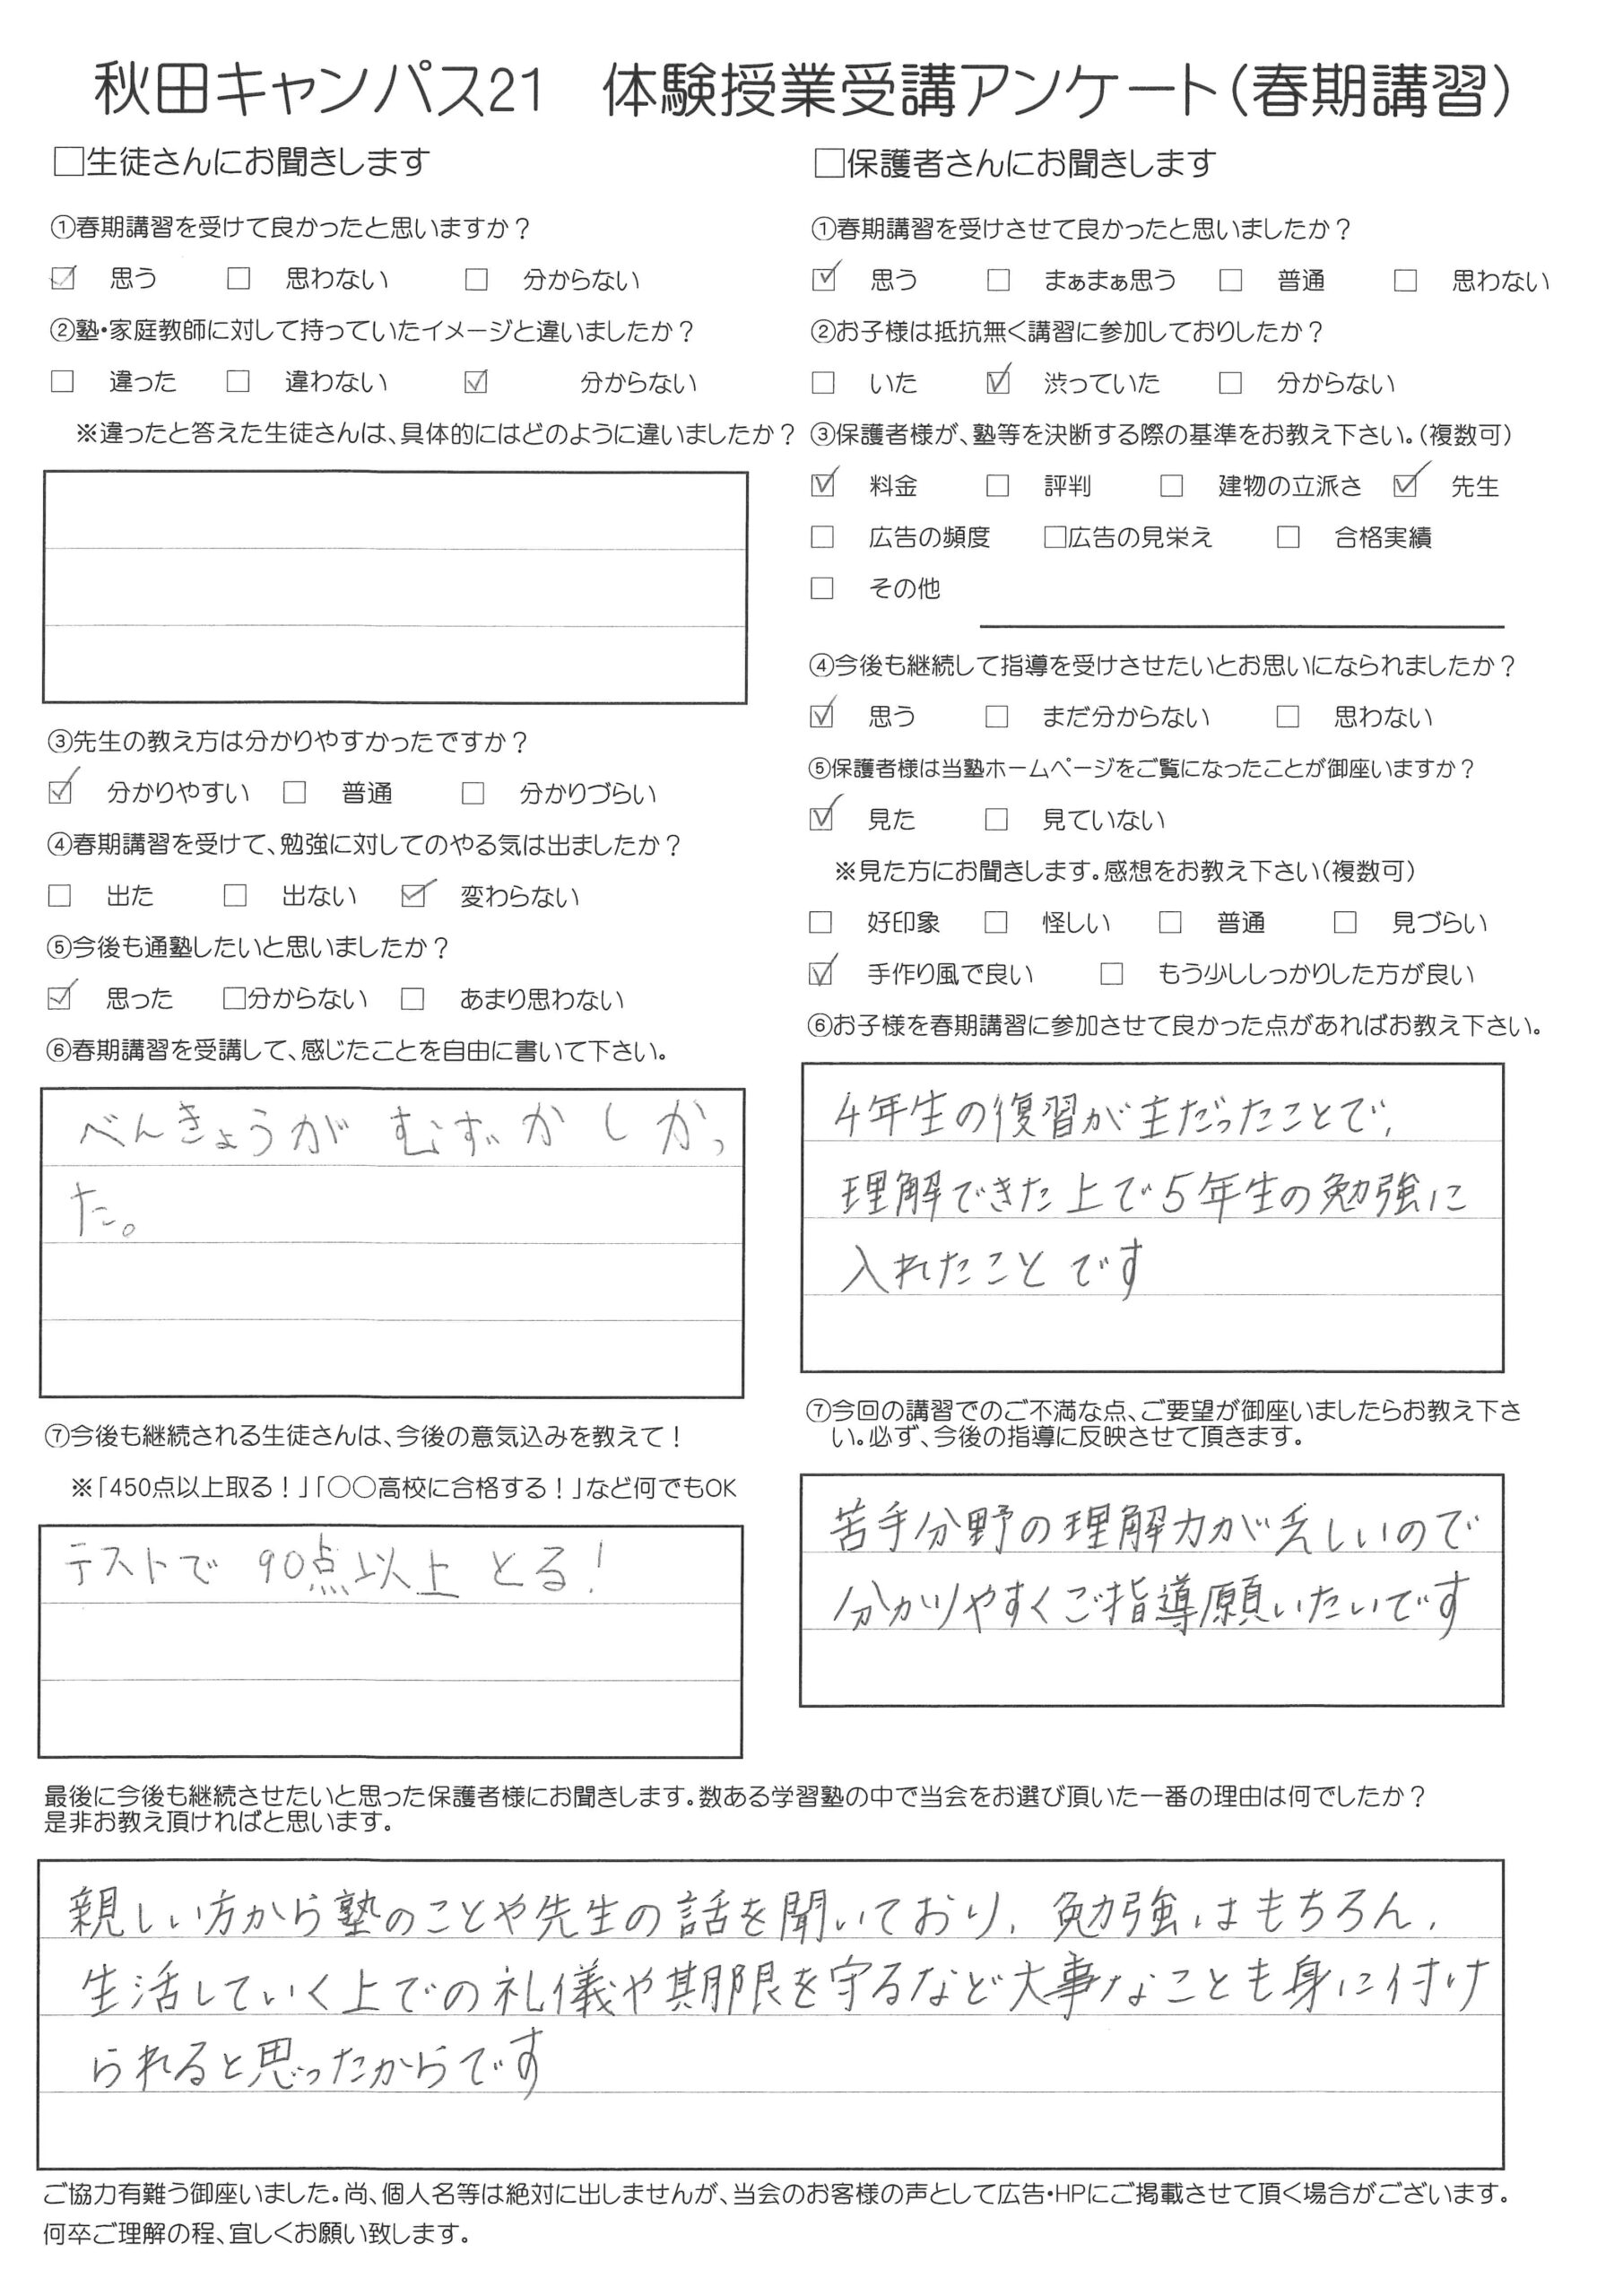 秋田キャンパス21　体験授業受講アンケート（春期講習）
□生徒さんにお聞きします
①春期講習を受けて良かったと思いますか？
☑ 思う □ 思わない □ 分からない
②塾・家庭教師に対して持っていたイメージと違いましたか？
□ 違った □ 違わない ☑ 分からない
※違ったと答えた生徒さんは、具体的にはどのように違いましたか？
③先生の教え方は分かりやすかったですか？
☑ 分かりやすい □ 普通 □ 分かりづらい
④春期講習を受けて、勉強に対してのやる気は出ましたか？
□ 出た □ 出ない ☑ 変わらない
⑤今後も通塾したいと思いましたか？
☑ 思った □分からない □ あまり思わない
⑥春期講習を受講して、感じたことを自由に書いて下さい。
べんきょうが むずかしかっ
た。
⑦今後も継続される生徒さんは、今後の意気込みを教えて！
※「450点以上取る！」「○○高校に合格する！」など何でもOK
テストで 90点以上 とる！
□保護者さんにお聞きします
①春期講習を受けさせて良かったと思いましたか？
☑ 思う □ まぁまぁ思う □ 普通 □ 思わない
②お子様は抵抗無く講習に参加しておりしたか？
□ いた ☑ 渋っていた □ 分からない
③保護者様が、塾等を決断する際の基準をお教え下さい。（複数可）
☑ 料金 □ 評判 □ 建物の立派さ ☑ 先生
□ 広告の頻度 □広告の見栄え □ 合格実績
□ その他
④今後も継続して指導を受けさせたいとお思いになられましたか？
☑ 思う □ まだ分からない □ 思わない
⑤保護者様は当塾ホームページをご覧になったことが御座いますか？
☑ 見た □ 見ていない
※見た方にお聞きします。感想をお教え下さい（複数可）
□ 好印象 □ 怪しい □ 普通 □ 見づらい
☑ 手作り風で良い □ もう少ししっかりした方が良い
⑥お子様を春期講習に参加させて良かった点があればお教え下さい。
4年生の復習が主だったことで、
理解できた上で5年生の勉強に
入れたことです
⑦今回の講習でのご不満な点、ご要望が御座いましたらお教え下さ
い。必ず、今後の指導に反映させて頂きます。
苦手分野の理解力が乏しいので
分かりやすくご指導願いたいです
最後に今後も継続させたいと思った保護者様にお聞きします。数ある学習塾の中で当会をお選び頂いた一番の理由は何でしたか？
是非お教え頂ければと思います。
親しい方から塾のことや先生の話を聞いており、勉強はもちろん、
生活していく上での礼儀や期限を守るなど大事なことも身に付け
られると思ったからです
ご協力有難う御座いました。尚、個人名等は絶対に出しませんが、当会のお客様の声として広告・HPにご掲載させて頂く場合がございます。
何卒ご理解の程、宜しくお願い致します。